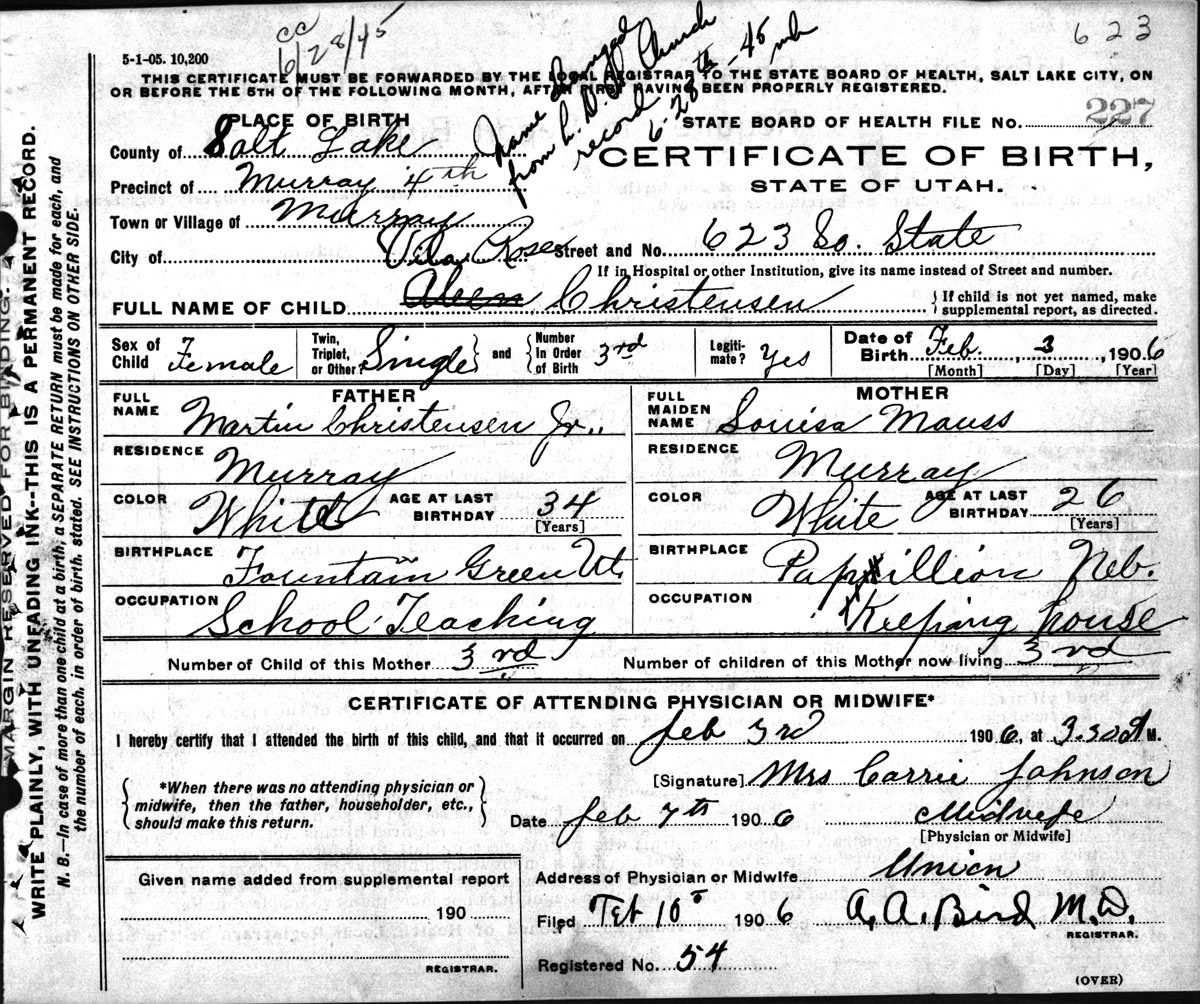 cc
6/28/45
623
5-1-05. 10,200
THIS CERTIFICATE MUST BE FORWARDED BY THE LOCAL REGISTRAR TO THE STATE BOARD OF HEALTH, SALT LAKE CITY, ON
OR BEFORE THE 5TH OF THE FOLLOWING MONTH, AFTER FIRST HAVING BEEN PROPERLY REGISTERED.
Name changed
from L. D. S. Church
record 6-28th-45 mb
PLACE OF BIRTH
STATE BOARD OF HEALTH FILE NO. 227
County of Salt Lake
CERTIFICATE OF BIRTH,
Precinct of Murray 4th
STATE OF UTAH.
Town or Village of Murray
City of Street and No. 623 So. State
If in Hospital or other Institution, give its name instead of Street and number.
Vila Rose
FULL NAME OF CHILD Aleen Christensen {If child is not yet named, make
supplemental report, as directed.
Sex of Child Female Twin, Triplet, or Other? Single and Number In Order of Birth 3rd Legiti- mate? Yes Date of Birth Feb. , 3 , 1906
[Month] [Day] [Year]
FATHER MOTHER
FULL NAME Martin Christensen Jr., FULL MAIDEN NAME Louisa Mauss
RESIDENCE Murray RESIDENCE Murray
COLOR White AGE AT LAST BIRTHDAY 34 [Years] COLOR White AGE AT LAST BIRTHDAY 26 [Years]
BIRTHPLACE Fountain Green Ut. BIRTHPLACE Papillion Neb.
OCCUPATION School Teaching OCCUPATION Keeping house
Number of Child of this Mother 3rd Number of children of this Mother now living 3rd
CERTIFICATE OF ATTENDING PHYSICIAN OR MIDWIFE*
I hereby certify that I attended the birth of this child, and that it occurred on feb 3rd 1906, at 3.30 A M.
[Signature] Mrs Carrie Johnson
{*When there was no attending physician or
midwife, then the father, householder, etc.,
should make this return.}
Date feb 7th 1906 Midwife
[Physician or Midwife]
Given name added from supplemental report
190
REGISTRAR.
Address of Physician or Midwife Union
Filed Feb 10 1906 A. A. Bird M.D.
REGISTRAR.
Registered No. 54
(OVER)
MARGIN RESERVED FOR BINDING.
WRITE PLAINLY, WITH UNFADING INK--THIS IS A PERMANENT RECORD.
N. B.—In case of more than one child at a birth, a SEPARATE RETURN must be made for each, and
the number of each, in order of birth, stated. SEE INSTRUCTIONS ON OTHER SIDE.